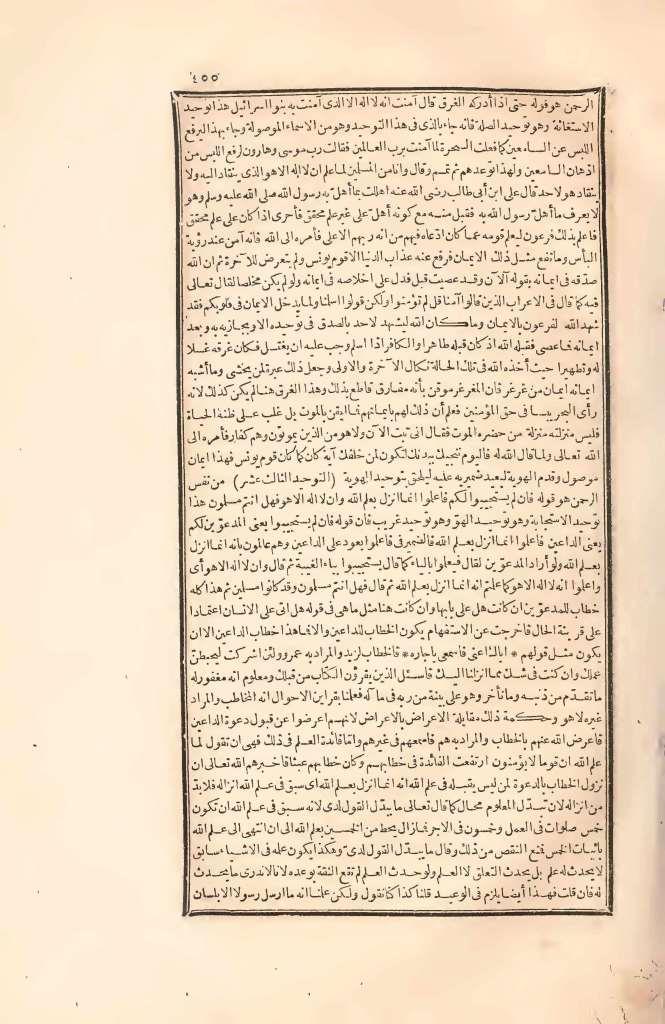 ٤٥٥
الرحمن هو قوله حتى اذا أدركه الغرق قال آمنت انه لا اله الا الذى آمنت به بنوا اسرائيل هذا توحيد
الاستغاثة وهو توحيد الصلة فانه جاء بالذى فى هذا التوحيد وهو من الاسماء الموصولة وجاء بهذا ليرفع
اللبس عن السامعين كما فعلت السحرة لما آمنت برب العالمين فقالت رب موسى وهارون لرفع اللبس من
اذهان السامعين ولهذا توعدهم ثم تمم وقال وانا من المسلمين لما علم ان لا اله الا هو الذى ينقاد اليه ولا
ينقاد هو لاحد قال على ابن أبى طالب رضى الله عنه اهللت بما أهل به رسول الله صلى الله عليه وسلم وهو
لا يعرف ما أهل رسول الله به فقبل منه مع كونه أهل على غير علم محقق فأحرى اذا كان على علم محقق
فاعلم بذلك فرعون ليعلم قومه عما كان ادعاه فيهم من انه ربهم الاعلى فأمره الى الله فانه آمن عند رؤية
البأس وما نفع مثل ذلك الايمان فرفع عنه عذاب الدنيا الا قوم يونس ولم يتعرض للآخرة ثم ان الله
صدقه فى ايمانه بقوله آلآن وقد عصيت قبل فدل على اخلاصه فى ايمانه ولو لم يكن مخلصا لقال تعالى
فيه كما قال فى الاعراب الذين قالوا آمنا قل لم تؤمنوا ولكن قولوا اسلمنا ولما يدخل الايمان فى قلوبكم فقد
شهد الله لفرعون بالايمان وما كان الله ليشهد لاحد بالصدق فى توحيده الا ويجازيه به وبعد
ايمانه فما عصى فقبله الله اذ كان قبله طاهرا والكافر اذا اسلم وجب عليه ان يغتسل فكان غرقه غسلا
له وتطهيرا حيث أخذه الله فى تلك الحالة نكال الآخرة والاولى وجعل ذلك عبرة لمن يخشى وما أشبه
ايمانه ايمان من غرغر فان المغرغر موقن بأنه مفارق قاطع بذلك وهذا الغرق هنا لم يكن كذلك لانه
رأى البحر يبسا فى حق المؤمنين فعلم أن ذلك لهم بايمانهم فما ايقن بالموت بل غلب على ظنه الحياة
فليس منزلته منزلة من حضره الموت فقال انى تبت الآن ولا هو من الذين يموتون وهم كفار فأمره الى
الله تعالى ولما قال الله له فاليوم ننجيك ببدنك لتكون لمن خلفك آية كان كما كان قوم يونس فهذا ايمان
موصول وقدم الهوية ليعيد ضمير به عليه ليلحق بتوحيد الهوية (التوحيد الثالث عشر) من نفس
الرحمن هو قوله فان لم يستجيبوا لكم فاعلموا انما انزل بعلم الله وان لا اله الا هو فهل انتم مسلمون هذا
توحيد الاستجابة وهو توحيد الهو وهو توحيد غريب فان قوله فان لم يستجيبوا يعنى المدعوين لكم
يعنى الداعين فاعلموا انما انزل بعلم الله فالضمير فى فاعلموا يعود على الداعين وهم عالمون بأنه انما انزل
بعلم الله ولو أراد المدعوين لقال فيعلموا بالياء كما قال يستجيبوا بياء الغيبة ثم قال وان لا اله الا هو أى
واعلموا انه لا اله الا هو كما علمتم انه انما انزل بعلم الله ثم قال فهل انتم مسلمون وقد كانوا مسلمين ثم هذا كله
خطاب للمدعوين ان كانت هل على بابها وان كانت هنا مثل ما هى فى قوله هل اتى على الانسان اعتمادا
على قرينة الحال فاخرجت عن الاستفهام يكون الخطاب للداعين والا فما هذا خطاب الداعين الا ان
يكون مثل قولهم * اياك اعنى فاسمعى يا جاره * فالخطاب لزيد والمراد به عمرو ولئن اشركت ليحبطن
عملك وان كنت فى شك مما انزلنا اليك فاسئل الذين يقرؤن الكتاب من قبلك ومعلوم انه مغفور له
ما تقدم من ذنبه وما تأخر وهو على بينة من ربه فى ما كه فعلمنا بقراين الاحوال انه المخاطب والمراد
غيره لا هو وحكمة ذلك مقابلة الاعراض بالاعراض لانهم اعرضوا عن قبول دعوة الداعين
فاعرض الله عنهم بالخطاب والمراد به هم فاسمعهم فى غيرهم واما فائدة العلم فى ذلك فهى ان تقول لما
علم الله ان قوما لا يؤمنون ارتفعت الفائدة فى خطابهم وكان خطابهم عبثا فاخبرهم الله تعالى ان
نزول الخطاب بالدعوة لمن ليس يقبله فى علم الله انه انما انزل بعلم الله اى سبق فى علم الله انزاله فلابد
من انزاله لان تبدل المعلوم محال كما قال تعالى ما يبدل القول لدى لانه سبق فى علم الله ان تكون
خمس صلوات فى العمل وخمسون فى الاجر فما زال يحط من الخمسين بعلم الله الى ان انتهى الى علم الله
باثبات الخمس فمنع النقص من ذلك وقال ما يبدل القول لدى وهكذا يكون علمه فى الاشياء سابق
لا يحدث له علم بل يحدث التعلق لا العلم ولو حدث العلم لم تقع الثقة بوعده لانا لا ندرى ما يحدث
له فان قلت فهذا أيضا يلزم فى الوعيد قلنا كذا كنا نقول ولكن علمنا انه ما ارسل رسولا الا بلسان